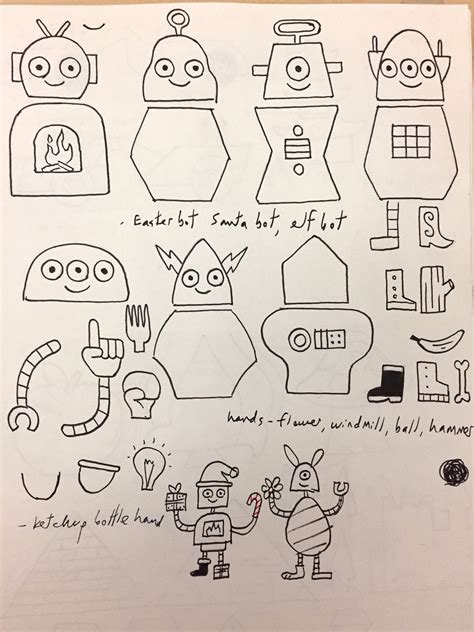 - Easter bot Santa bot, elf bot
hands - flower, windmill, ball, hammer
- ketchup bottle hand